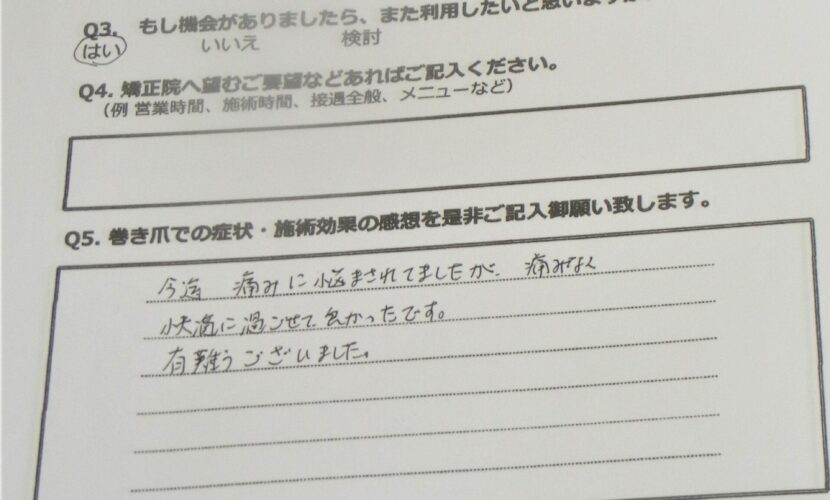 Q3. もし機会がありましたら、また利用したいと思いますか
はい いいえ 検討
Q4. 矯正院へ望むご要望などあればご記入ください。
（例 営業時間、施術時間、接遇全般、メニューなど）
Q5. 巻き爪での症状・施術効果の感想を是非ご記入御願い致します。
今迄 痛みに悩まされてましたが、痛みなく
快適に過ごせて良かったです。
有難うございました。